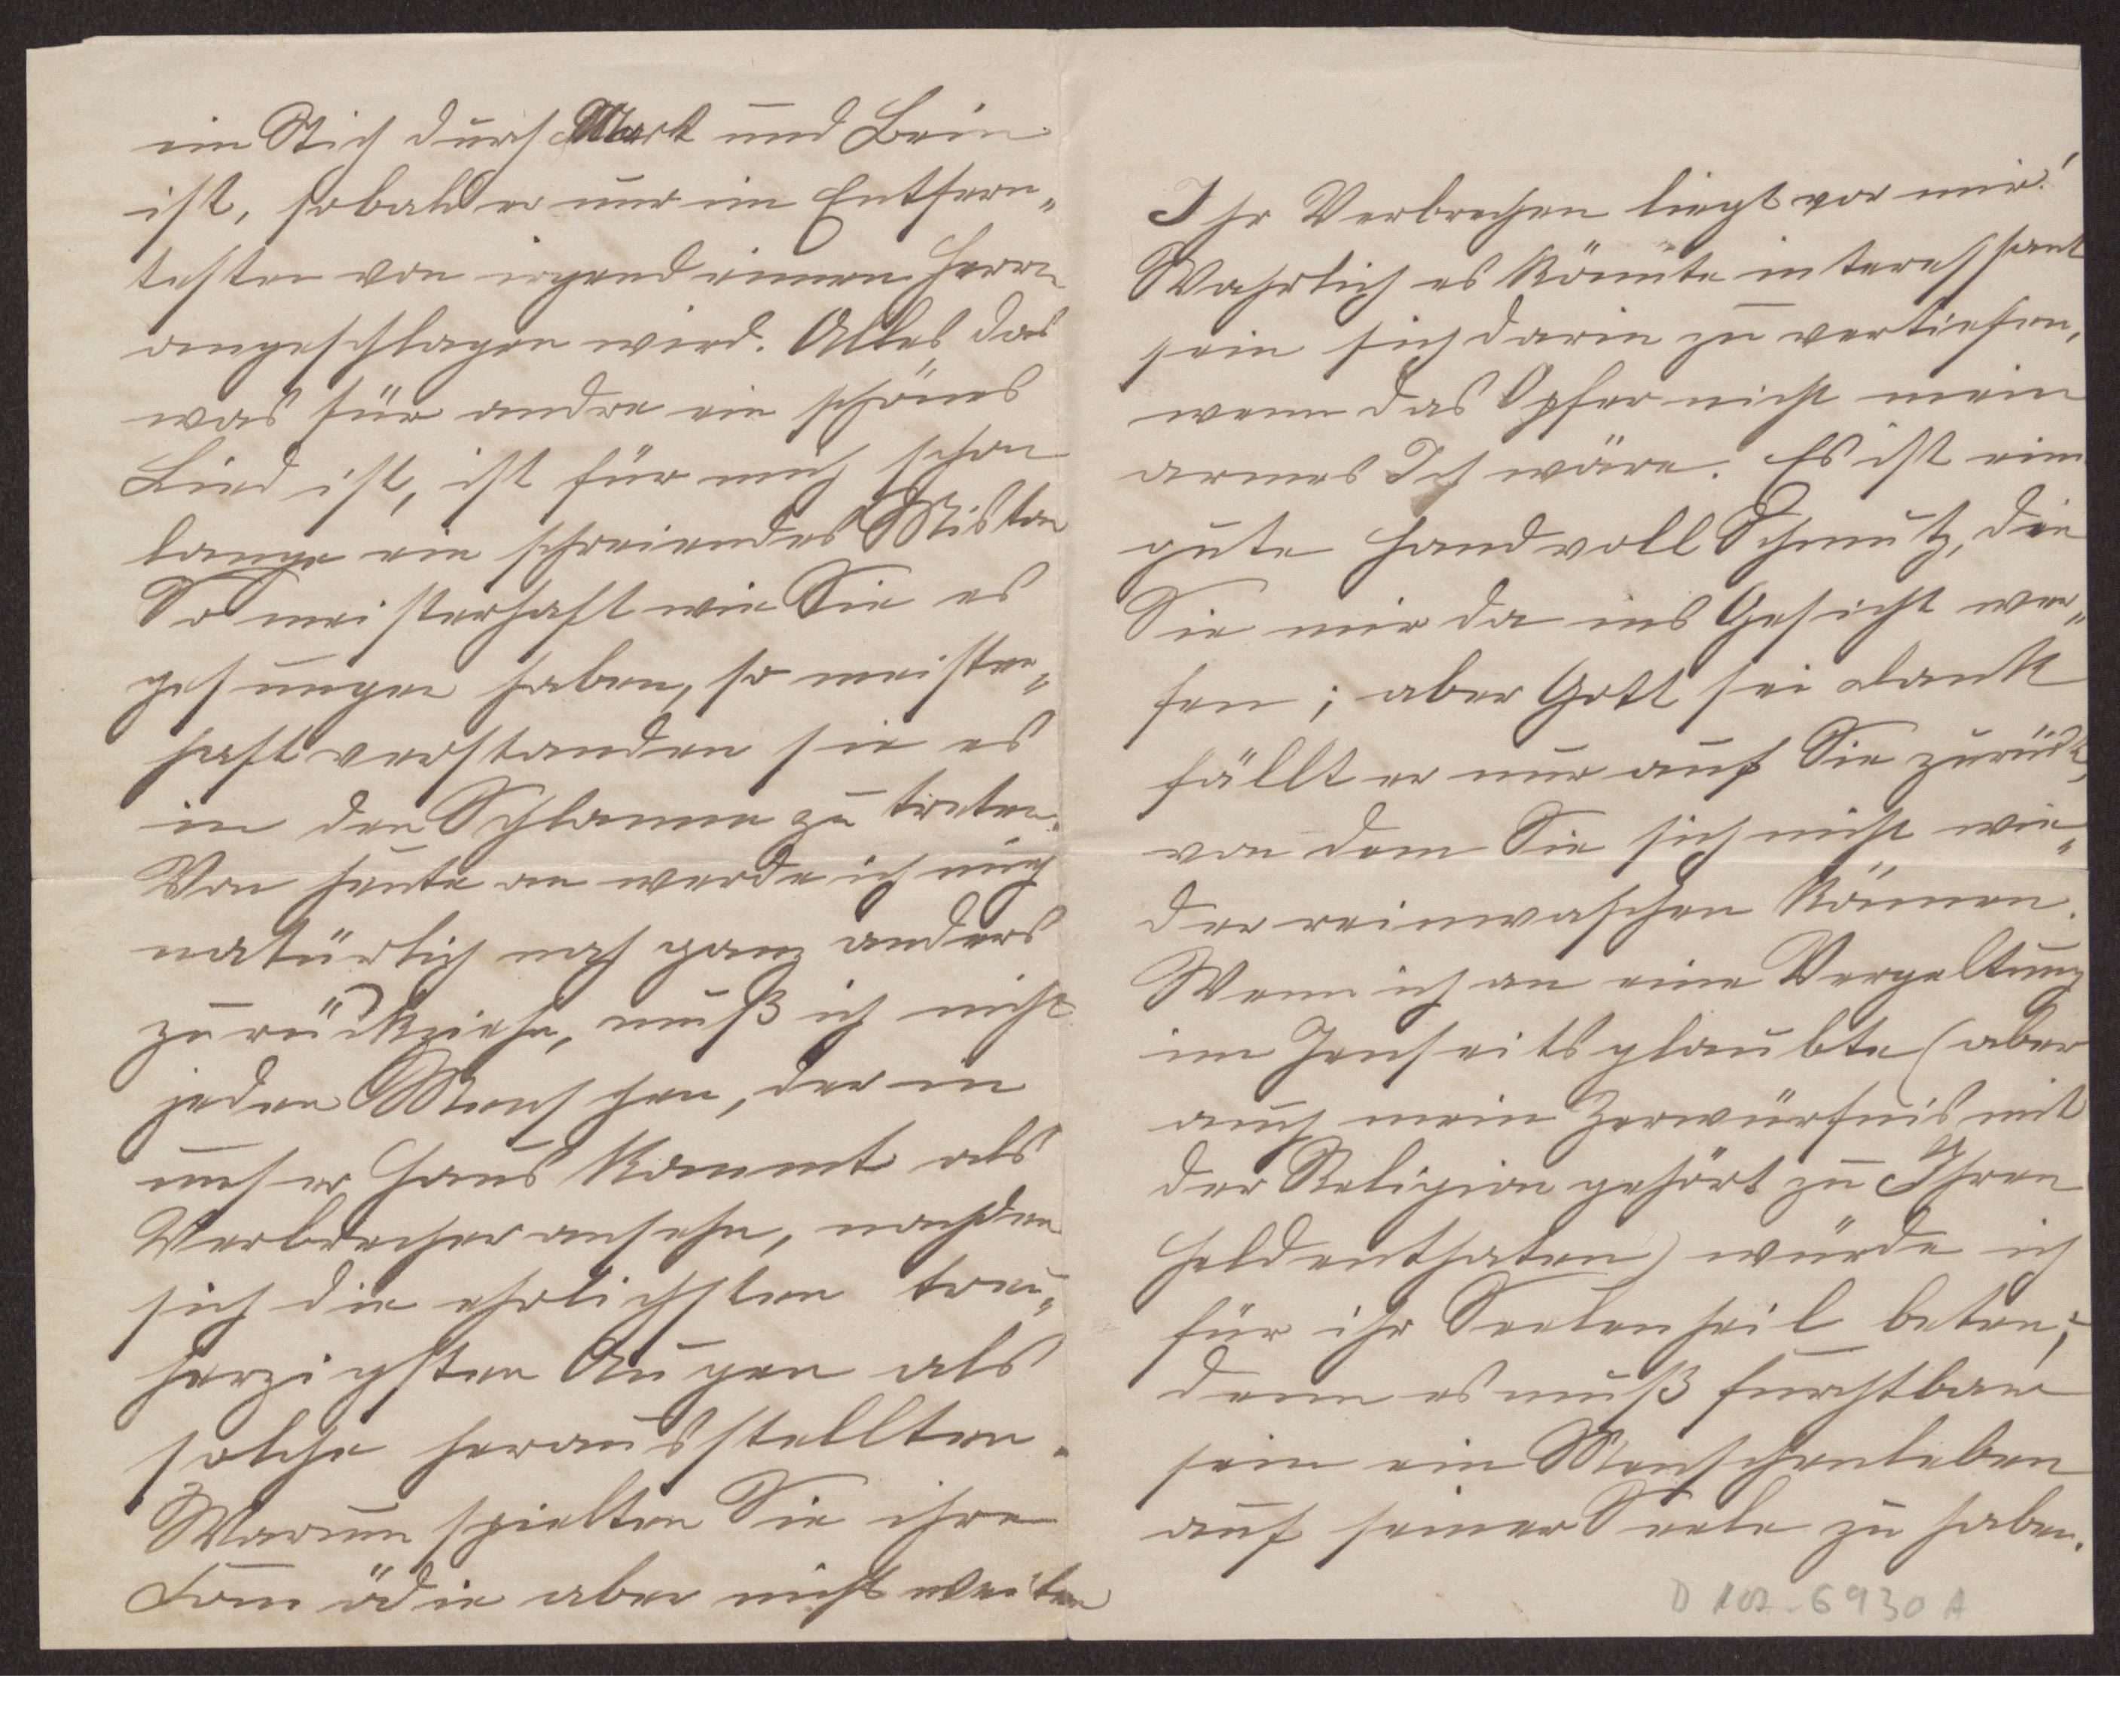 ein Stich durch Mark und Bein
ist, sobald er nur im Entfern„
testen von irgend einem Herrn
angeschlagen wird. Alles, das
was für andre ein schönes
Lied ist, ist für mich schon
lange ein schreiendes Miston
So meisterhaft wie Sie es
gesungen haben, so meister„
haft verstanden sie es
in den Schlamm zu treten.
Von heute an werde ich mich
natürlich noch ganz anders
zurückziehe, muß ich nicht
jeden Menschen, der in
unser Haus kommt als
Verbrecher ansehn, nachdem
sich die ehrlichsten treu„
herzigsten Augen als
solche herausstellten.
Warum spielten Sie ihre
Komödie aber nicht weiter
Ihr Verbrechen liegt vor mir!
Wahrlich es könnte interessant
sein sich darin zu vertiefen,
wenn das Opfer nicht mein
armes Ich wäre. Es ist eine
gute Handvoll Schmutz, die
Sie mir da ins Gesicht wer„
fen; aber Gott sei dank
fällt er nur auf Sie zurück,
von dem Sie sich nicht wie„
der reinwaschen können.
Wenn ich an eine Vergeltung
im Jenseits glaubte (aber
auch mein Zerwürfnis mit
der Religion gehört zu Ihren
Heldenthaten) würde ich
für ihr Seelenheil beten;
denn es muß furchtbar
sein ein Menschenleben
auf seiner Seele zu haben.
D 102-6930 A